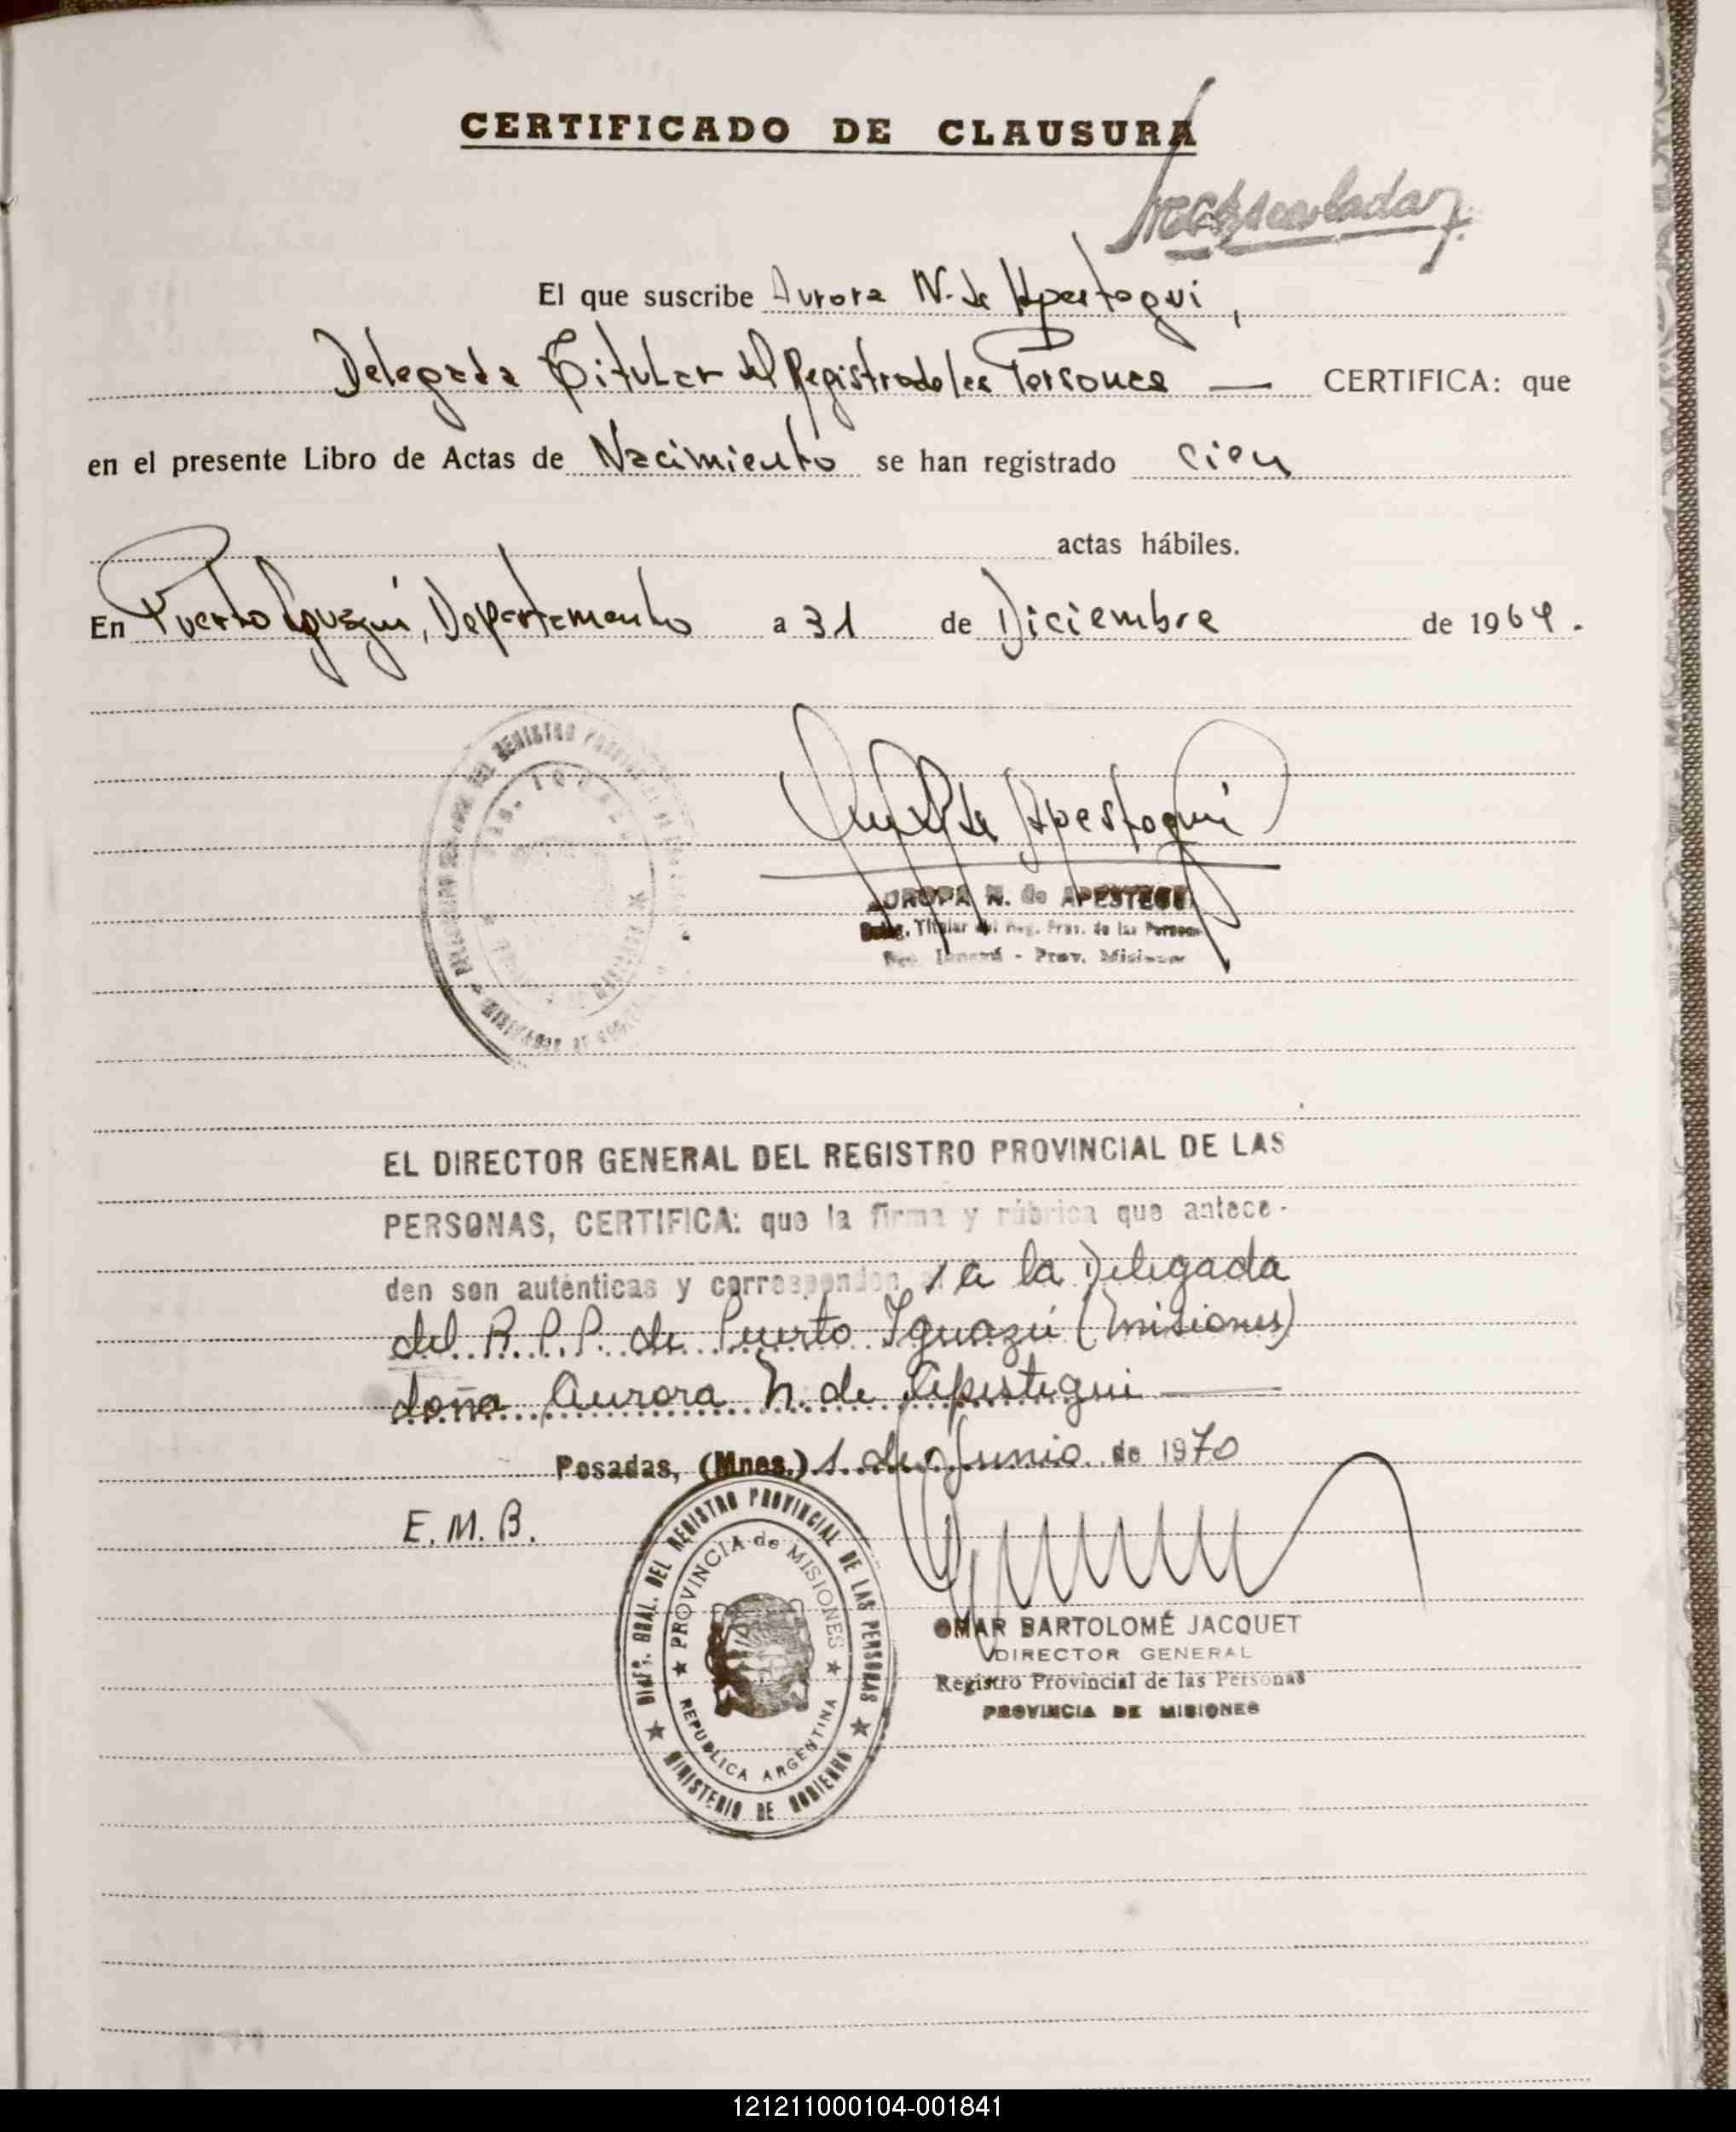 CERTIFICADO DE CLAUSURA
El que suscribe Aurora N. de Apestegui,
Delegada Titular del Registro de las Personas — CERTIFICA: que
en el presente Libro de Actas de Nacimiento se han registrado cien
actas hábiles.
En Puerto Iguazú, Departamento a 31 de Diciembre de 1969.
N. de Apestegui
AURORA N. de APESTEGUI
Deleg. Titular del Reg. Prov. de las Personas
Iguazú - Prov. Misiones
EL DIRECTOR GENERAL DEL REGISTRO PROVINCIAL DE LAS
PERSONAS, CERTIFICA: que la firma y rúbrica que antece-
den son auténticas y corresponden a la Delegada
del R.P.P. de Puerto Iguazú (Misiones)
doña Aurora N. de Apestegui
Posadas, (Mnes.) 1 de Junio de 1970
E. M. B.
DIREC. GRAL. DEL REGISTRO PROVINCIAL DE LAS PERSONAS
PROVINCIA de MISIONES
REPUBLICA ARGENTINA
MINISTERIO DE GOBIERNO
OMAR BARTOLOMÉ JACQUET
DIRECTOR GENERAL
Registro Provincial de las Personas
PROVINCIA DE MISIONES
121211000104-001841